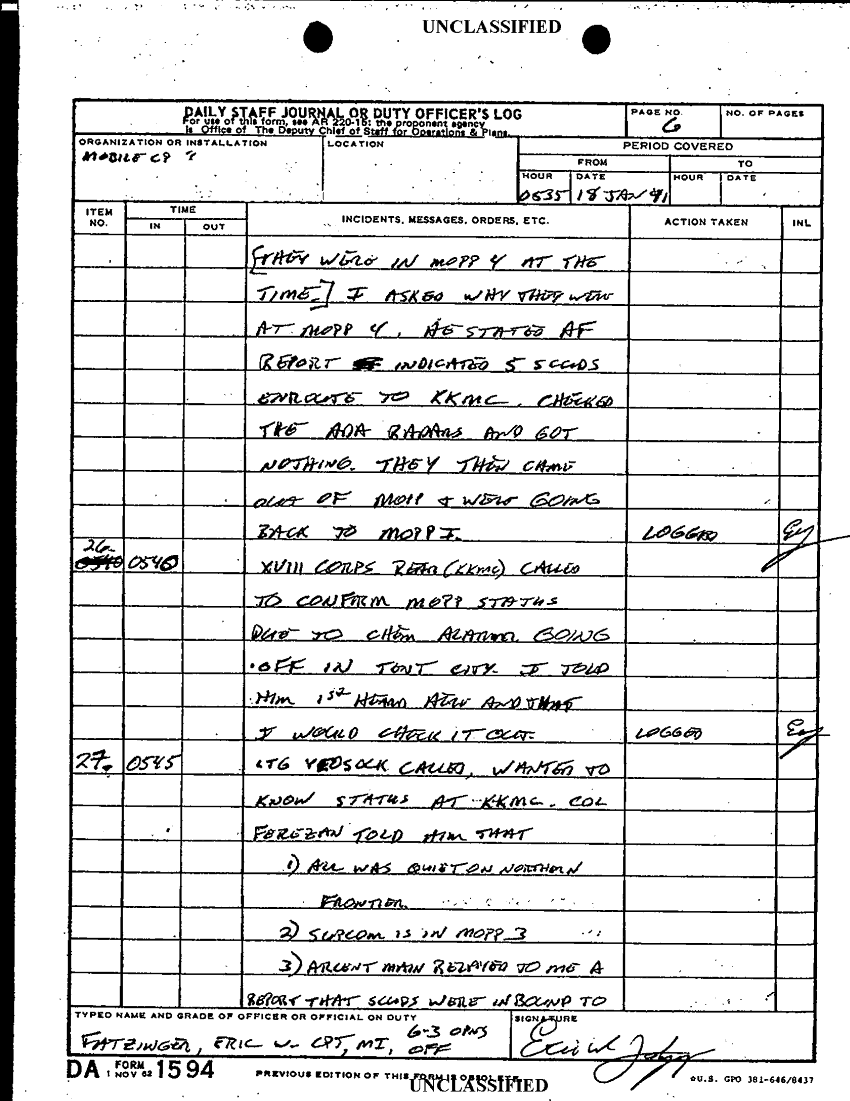 UNCLASSIFIED
DAILY STAFF JOURNAL OR DUTY OFFICER'S LOG
For use of this form, see AR 220-15: the proponent agency
is Office of The Deputy Chief of Staff for Operations & Plans.
PAGE NO.
6
NO. OF PAGES
ORGANIZATION OR INSTALLATION
MOBILE CP
LOCATION
PERIOD COVERED
FROM
TO
HOUR
DATE
HOUR
DATE
0535
18 JAN 91
ITEM NO.
TIME
IN
OUT
INCIDENTS, MESSAGES, ORDERS, ETC.
ACTION TAKEN
INL
[THEY WERE IN MOPP 4 AT THE
TIME.] I ASKED WHY THEY WERE
AT MOPP 4. HE STATED AF
REPORT INDICATED 5 SCUDS
ENROUTE TO KKMC. CHECKED
THE ADA RADARS AND GOT
NOTHING. THEY THEN CAME
OUT OF MOPP & WERE GOING
BACK TO MOPP I. LOGGED
26 0540 XVIII CORPS REAR (KKMC) CALLED
TO CONFIRM MOPP STATUS
DUE TO CHEM ALARM GOING
OFF IN TENT CITY. I TOLD
HIM 1ST HEARD AND THAT
I WOULD CHECK IT OUT. LOGGED
27. 0545 LTG YEOSOCK CALLED, WANTED TO
KNOW STATUS AT KKMC. COL
FEREZAN TOLD HIM THAT
1) ALL WAS QUIET ON NORTHERN
FRONTIER.
2) SUPCOM IS IN MOPP 3
3) ARCENT MAIN RELAYED TO ME A
REPORT THAT SCUDS WERE INBOUND TO
TYPED NAME AND GRADE OF OFFICER OR OFFICIAL ON DUTY
FATZINGER, ERIC W. CPT, MI, G-3 OPNS OFF
SIGNATURE
DA FORM 1 NOV 62 1594
PREVIOUS EDITION OF THIS FORM IS OBSOLETE.
UNCLASSIFIED
☆U.S. GPO 381-646/8437